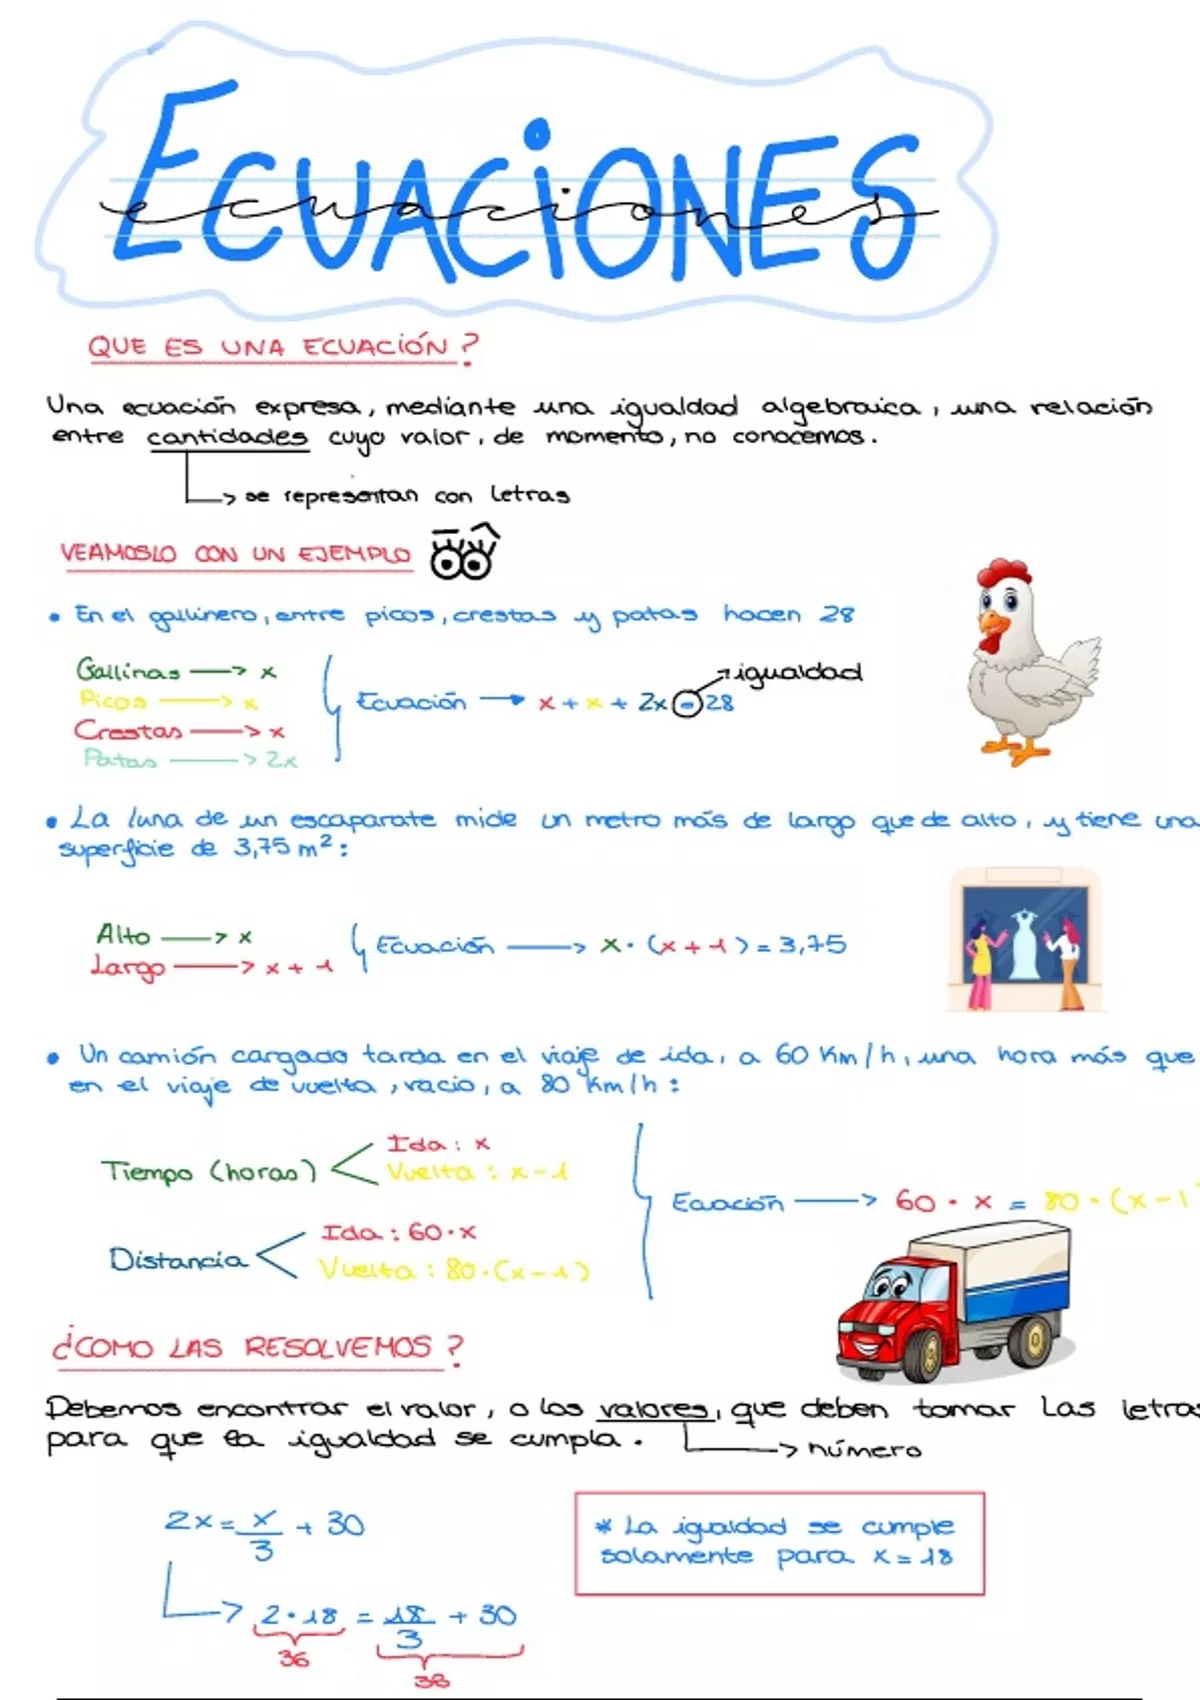 ECUACIONES
ecuaciones
QUE ES UNA ECUACIÓN?
Una ecuación expresa, mediante una igualdad algebraica, una relación
entre cantidades cuyo valor, de momento, no conocemos.
se representan con letras
VEAMOSLO CON UN EJEMPLO
• En el gallinero, entre picos, crestas y patas hacen 28
Gallinas → x
Picos → x
Crestas → x
Patas → 2x
Ecuación → x + x + 2x = 28
igualdad
• La luna de un escaparate mide un metro más de largo que de alto, y tiene una
superficie de 3,75 m²:
Alto → x
Largo → x + 1
Ecuación → x · (x + 1) = 3,75
• Un camión cargado tarda en el viaje de ida, a 60 Km/h, una hora más que
en el viaje de vuelta, vacio, a 80 Km/h:
Tiempo (horas)
Ida: x
Vuelta: x - 1
Distancia
Ida: 60·x
Vuelta: 80·(x-1)
Ecuación → 60 · x = 80 · (x - 1
¿COMO LAS RESOLVEMOS?
Debemos encontrar el valor, o los valores, que deben tomar las letras
para que la igualdad se cumpla.
→ número
2x = x/3 + 30
→ 2·18 = 18/3 + 30
36
38
* La igualdad se cumple
solamente para x = 18